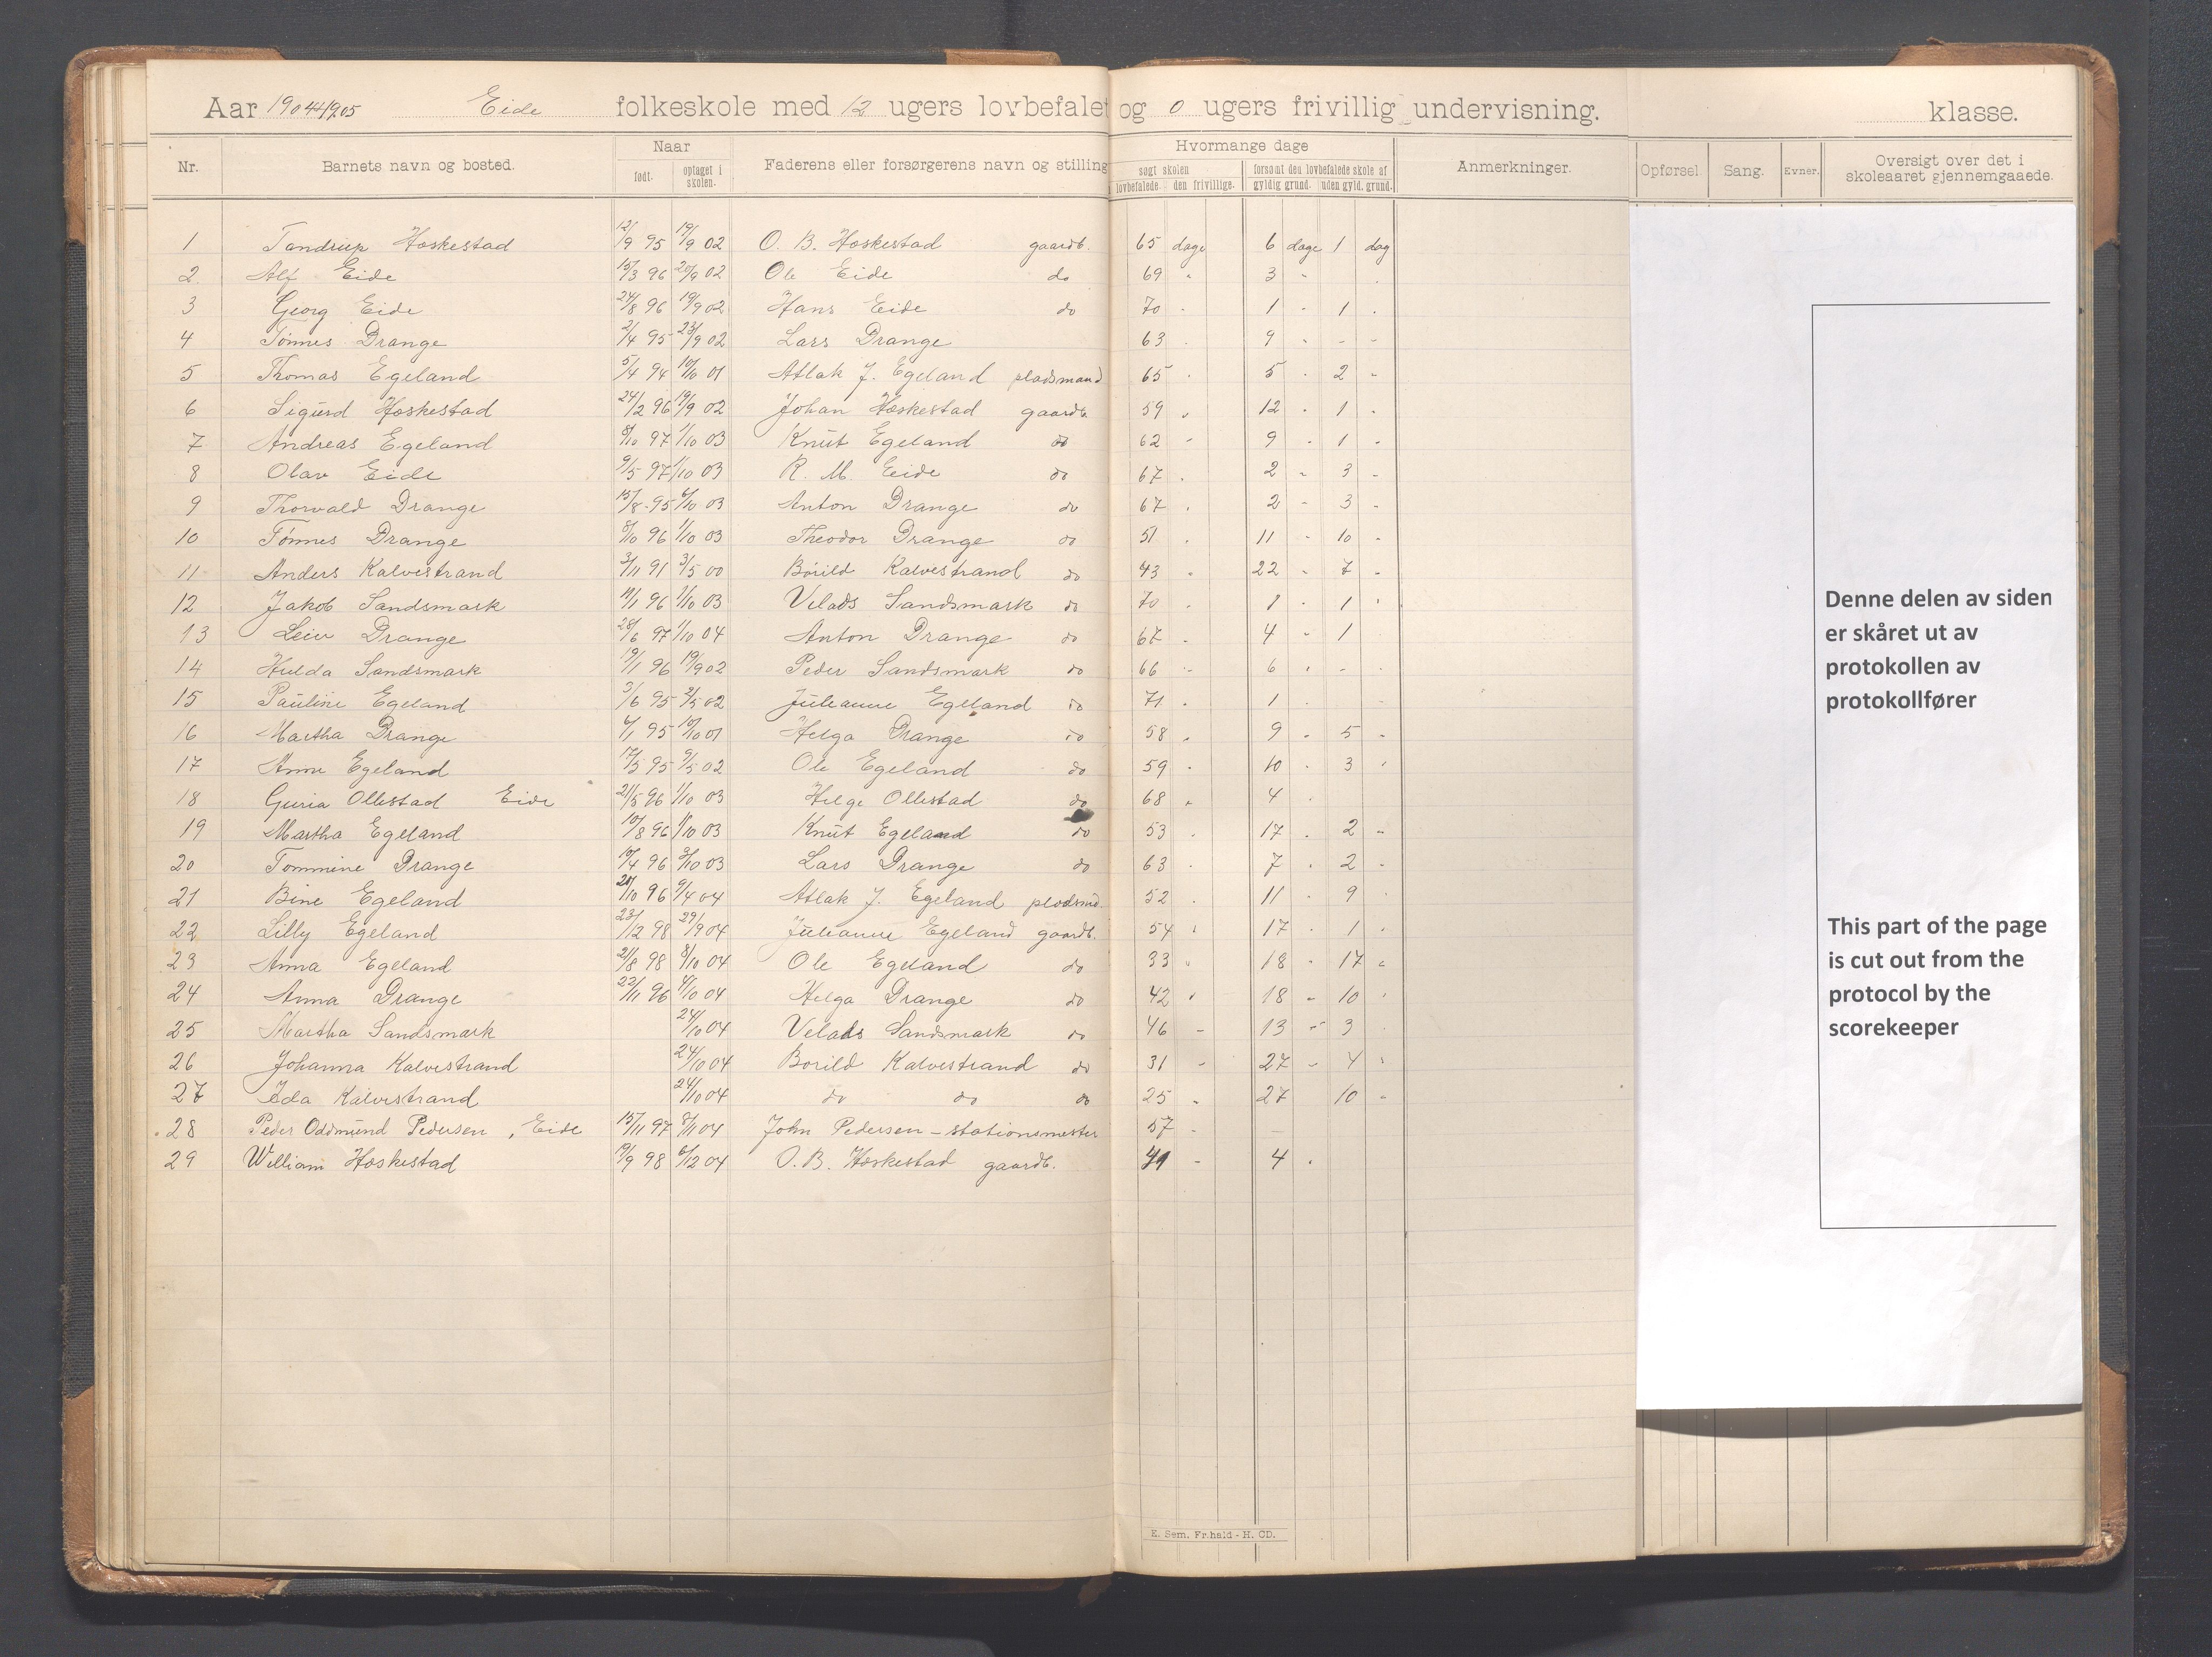 Aar 1904-4/1905 Eide folkeskole med 12 ugers lovbefalet og 0 ugers frivillig undervisning. klasse.
Nr. Barnets navn og bosted. Naar født. optaget i skolen. Faderens eller forsørgerens navn og stilling Hvormange dage søgt skolen lovbefalede. den frivillige. forsømt den lovbefalede skole af gyldig grund. uden gyld. grund. Anmerkninger. Opførsel. Sang. Evner. Oversigt over det i skoleaaret gjennemgaaede.
1 Tandrup Hæskestad 12/9 95 19/9 02 O. B. Hæskestad gaardb. 65 dage 6 dage 1 dag
2 Alf Eide 15/3 96 20/9 02 Ole Eide do 69 " 3 "
3 Georg Eide 24/8 96 19/9 02 Hans Eide do 70 - 1 - 1 .
4 Tønnes Drange 2/4 95 23/9 02 Lars Drange 63 . 9 - - -
5 Thomas Egeland 5/4 94 10/10 01 Atlak J. Egeland pladsmand 65 . 5 . 2 -
6 Sigurd Hæskestad 24/2 96 19/9 02 Johan Hæskestad gaardb. 59 . 12 . 1 .
7 Andreas Egeland 8/10 97 1/10 03 Knut Egeland do 62 - 9 - 1 -
8 Olav Eide 9/5 97 1/10 03 R. M. Eide do 67 . 2 - 3 -
9 Thorvald Drange 15/8 95 6/10 03 Anton Drange do 67 . 2 - 3 -
10 Tønnes Drange 8/10 96 1/10 03 Theodor Drange do 51 . 11 - 10 -
11 Anders Kalvestrand 3/11 91 3/5 00 Børild Kalvestrand do 43 . 22 - 7 -
12 Jakob Sandsmark 19/1 96 1/10 03 Velads Sandsmark do 70 . 1 . 1 .
13 Leiv Drange 28/6 97 1/10 04 Anton Drange do 67 - 4 - 1
14 Hulda Sandsmark 19/1 96 19/9 02 Peder Sandsmark do 66 - 6 . -
15 Pauline Egeland 3/6 95 2/5 02 Julianne Egeland do 71 . 1 .
16 Martha Drange 6/1 95 10/10 01 Helga Drange do 58 . 9 - 5 -
17 Anne Egeland 17/5 95 9/5 02 Ole Egeland do 59 . 10 . 3 .
18 Guria Ollestad Eide 21/5 96 1/10 03 Helge Ollestad do 68 . 4 .
19 Martha Egeland 10/8 96 1/10 03 Knut Egeland do 53 . 17 . 2 -
20 Tommine Drange 19/4 96 3/10 03 Lars Drange do 63 . 7 . 2 .
21 Bine Egeland 20/10 96 9/4 04 Atlak J. Egeland pladsmd. 52 . 11 . 9 .
22 Lilly Egeland 23/12 98 29/9 04 Julianne Egeland gaardb. 54 . 17 . 1 .
23 Anna Egeland 21/8 98 8/10 04 Ole Egeland do 33 " 18 - 17 "
24 Anna Drange 22/11 96 4/10 04 Helga Drange do 42 . 18 - 10 .
25 Martha Sandsmark 24/10 04 Velads Sandsmark do 46 - 13 - 3 .
26 Johanna Kalvestrand 24/10 04 Borild Kalvestrand do 31 - 27 - 4 .
27 Ida Kalvestrand 24/10 04 do do do 25 . 27 10 -
28 Peder Oddmund Pedersen, Eide 15/11 97 8/11 04 John Pedersen - stationsmester 57 -
29 William Hæskestad 9/9 98 6/12 04 O. B. Hæskestad gaardb. 41 - 4 .
E. Sem, Fr.hald - H. CD.
Denne delen av siden
er skåret ut av
protokollen av
protokollfører
This part of the page
is cut out from the
protocol by the
scorekeeper